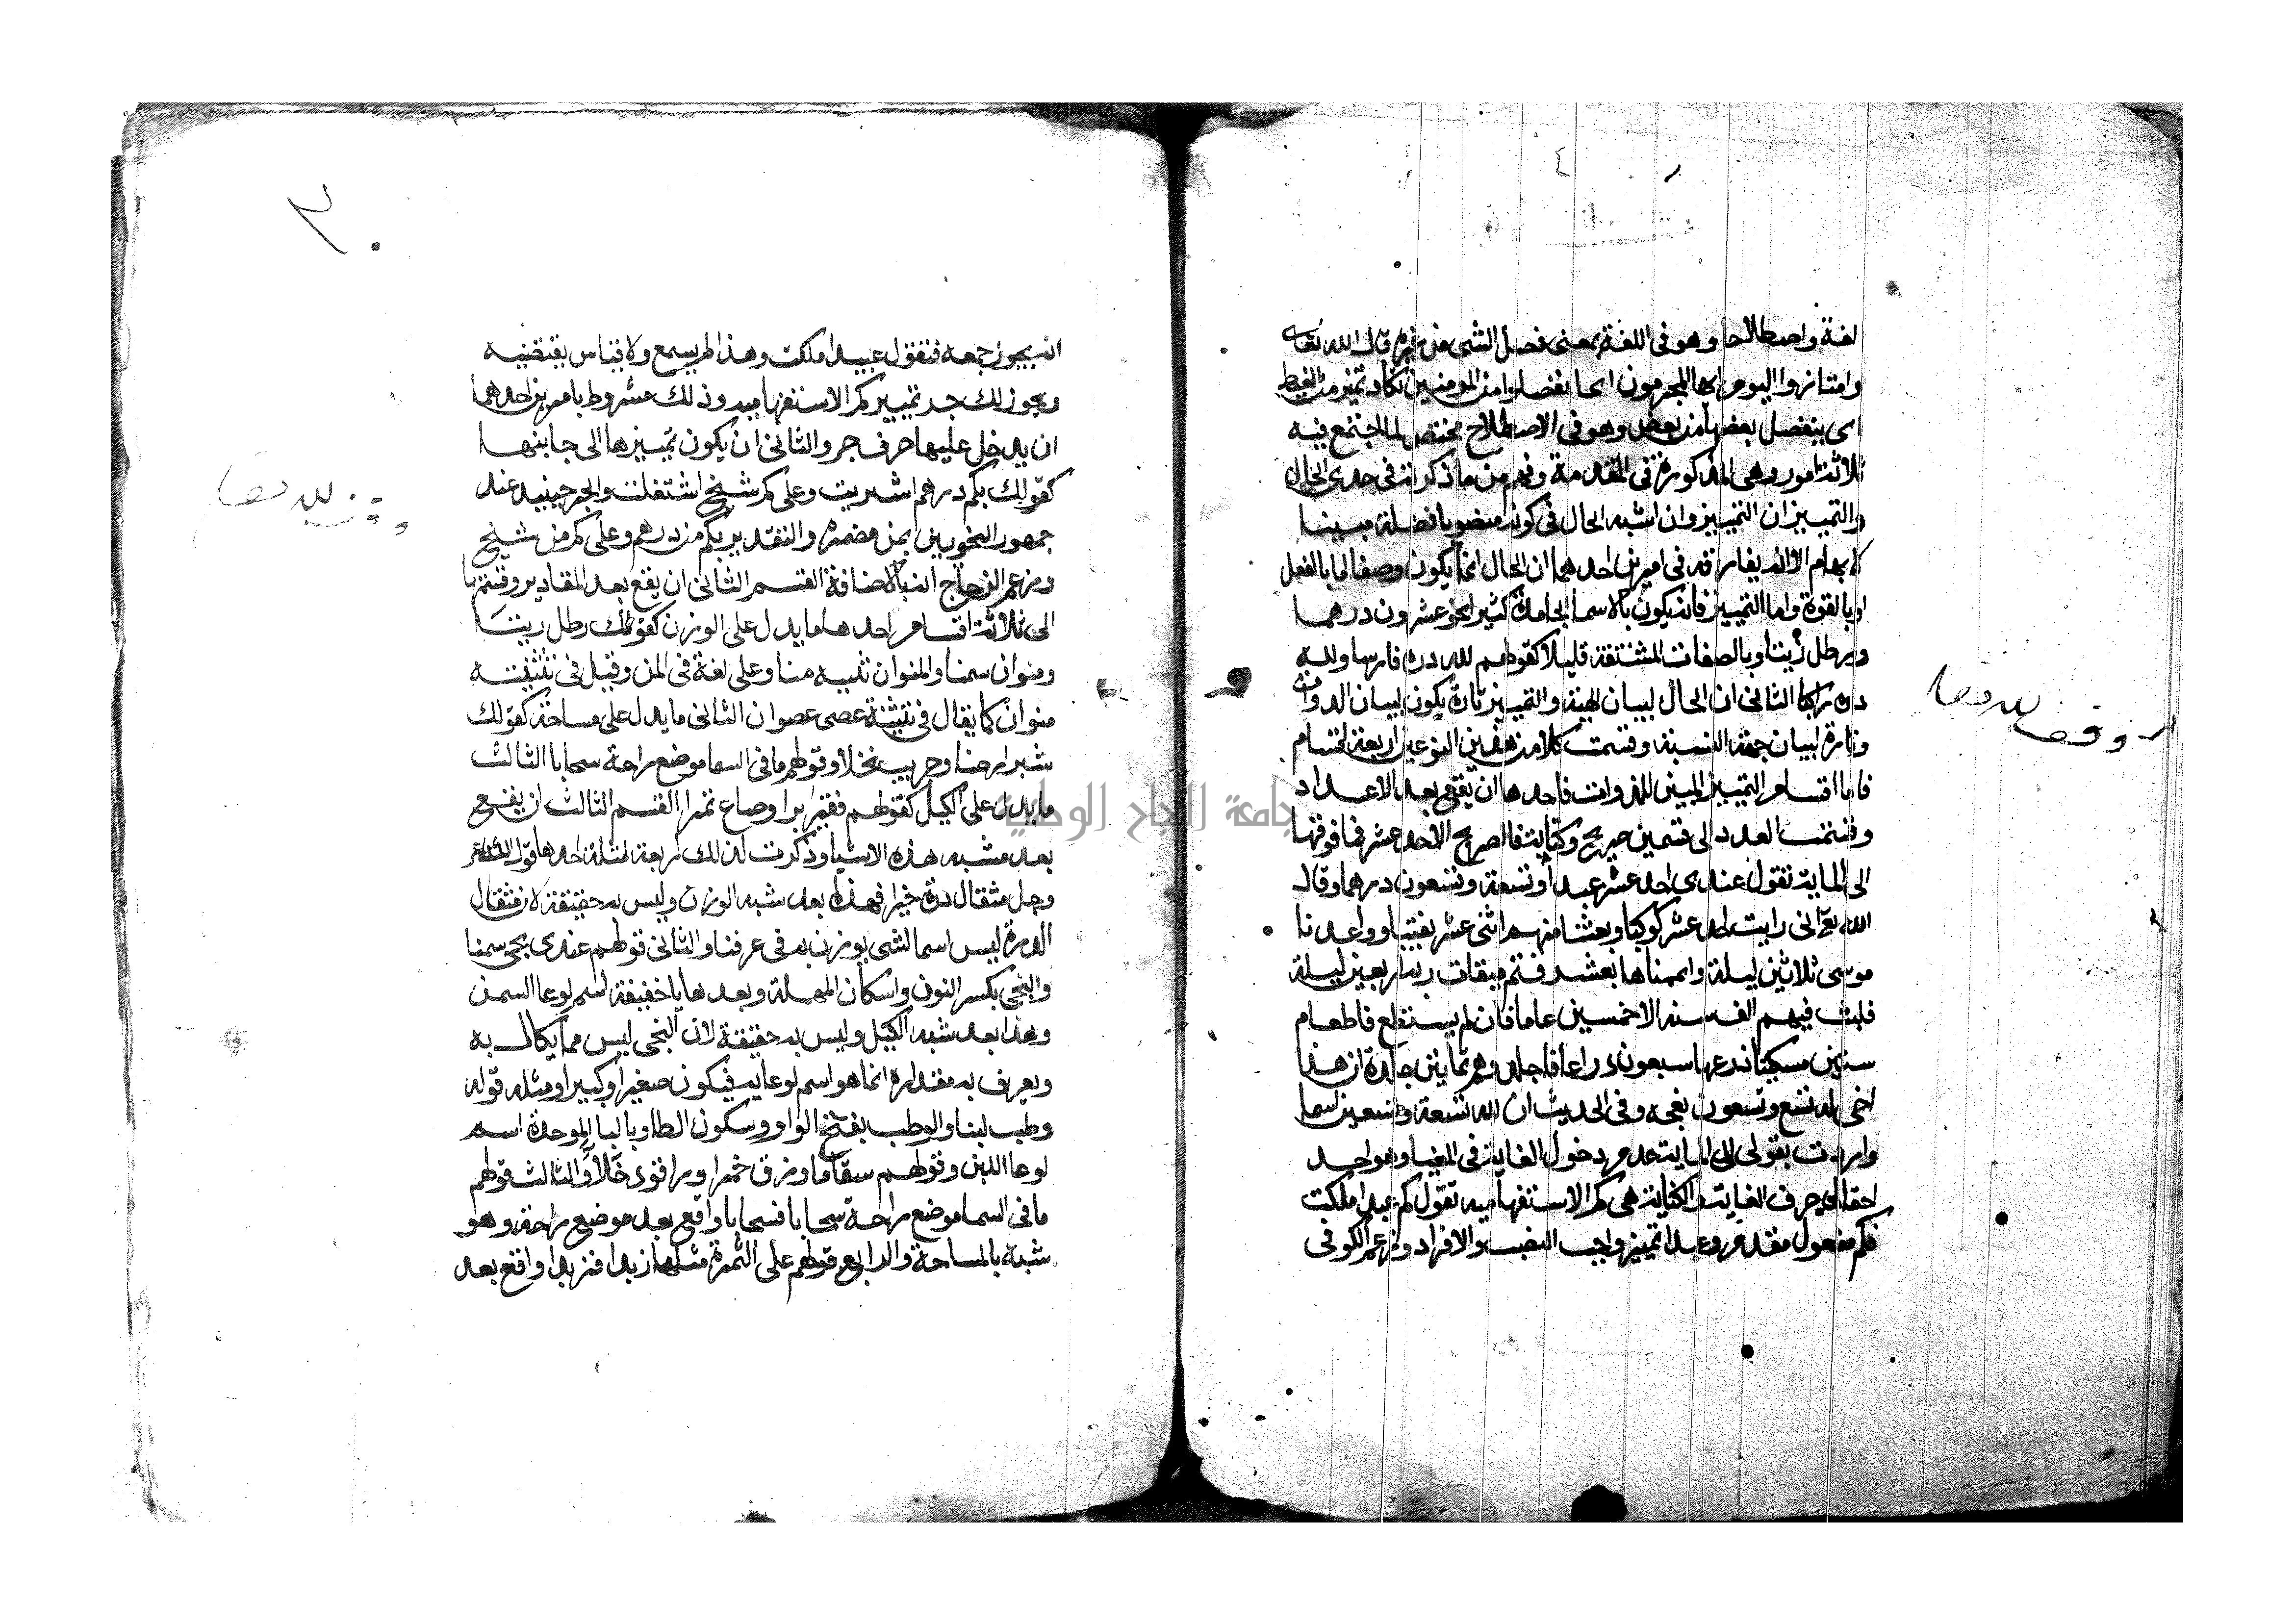 لغة واصطلاحا وهو في اللغة بمعنى فصل الشي عن غيره قال الله تعالى
وامتازوا اليوم ايها المجرمون اى انفصلوا من المومنين تكاد تميز من الغيظ
اى ينفصل بعضها من بعض وهو في الاصطلاح مختص لما اجتمع فيه
ثلاثة امور وهي المذكورة في المقدمة وفهم من ما ذكرته في حدى الحال
والتمييز ان التمييز وان اشبه الحال في كونه منصوبا فضلة مبينا
لابهام الا انه يفارقه في امرين احدهما ان الحال انما يكون وصفا اما بالفعل
او بالقوة واما التمييز فانه يكون بالاسما الجامدة كثيرا نحو عشرون درهما
ورطل زيتا وبالصفات المشتقة قليلا كقولهم لله دره فارسا ولله
دره راكبا الثاني ان الحال لبيان الهيئة والتمييز تارة يكون لبيان الذوات
وتارة لبيان جهة النسبة وقسمت كلا من هذين النوعين اربعة اقسام
فاما اقسام التمييز المبين للذوات فاحدها ان يقع بعد الاعداد
وقسمت العدد الى قسمين صريح وكناية فالصريح الاحد عشر فما فوقها
الى الماية تقول عندى احد عشر عبدا وتسعة وتسعون درهما وقال
الله تع اني رايت احد عشر كوكبا وبعثنا منهم اثنى عشر نقيبا وواعدنا
موسى ثلاثين ليلة واتممناها بعشر فتم ميقات ربه اربعين ليلة
فلبث فيهم الف سنه الا خمسين عاما فان لم يستطع فاطعام
ستين مسكينا ذرعها سبعون ذراعا فاجلدوهم ثمانين جلدة ان هذا
اخى له تسع وتسعون نعجه وفي الحديث ان لله تسعة وتسعين اسما
واردت بقولى الى الماية عدم دخول الغاية في المغيا وهو احد
احتمالى حرف الغاية والكناية هي كم الاستفهاميه تقول كم عبدا ملكت
فكم مفعول مقدم وعبدا تمييز واجب النصب والافراد وزعم الكوفى
٣
انه يجوز جمعه فتقول عبيدا ملكت وهذا لم يسمع ولا قياس يقتضيه
ويجوز لك جر تمييز كم الاستفهاميه وذلك مشروط بامرين احدهما
ان يدخل عليها حرف جر والثاني ان يكون تمييزها الى جانبها
كقولك بكم درهم اشتريت وعلى كم شيخ اشتغلت والجر حينيذ عند
جمهور النحويين بمن مضمرة والتقدير بكم من درهم وعلى كم من شيخ
وزعم الزجاج انه بالاضافة القسم الثاني ان يقع بعد المقادير وقسمتها
الى ثلاثة اقسام احدها ما يدل على الوزن كقولك رطل زيتا
ومنوان سمنا والمنوان تثنيه منا وعلى لغة في المن وقيل في تثنيته
منوان كما يقال في تثنية عصى عصوان الثاني ما يدل على مساحة كقولك
شبر ارضا وجريب نخلا وقولهم ما في السما موضع راحة سحابا الثالث
ما يدل على الكيل كقولهم قفيز برا وصاع تمرا القسم الثالث ان يقع
بعد مشبه هذه الاشيا وذكرت لذلك اربعة امثلة احدها قول الله عز
وجل مثقال ذرة خيرا فهذه بعد شبه الوزن وليس به حقيقة لان مثقال
الذرة ليس اسما لشى يوزن به في عرفنا والثاني قولهم عندى نحى سمنا
والنحى بكسر النون واسكان المهملة وبعدها يا خفيفة اسم لوعا السمن
وهذا بعد شبه الكيل وليس به حقيقة لان النحى ليس مما يكال به
ويعرف به مقداره انما هو اسم لوعايه فيكون صغيرا وكبيرا ومثله قوله
وطب لبنا والوطب بفتح الواو وسكون الطا وبالبا الموحدة اسم
لوعا اللبن وقولهم سقا ما وزق خمرا وراقود خلا والثالث قولهم
ما في السما موضع راحة سحابا فسحابا واقع بعد موضع راحة وهو
شبه بالمساحة والرابع قولهم على التمرة مثلها زبدا فزبدا واقع بعد
وقف لله تعالى
وقف لله تعالى
جامعة النجاح الوطنية